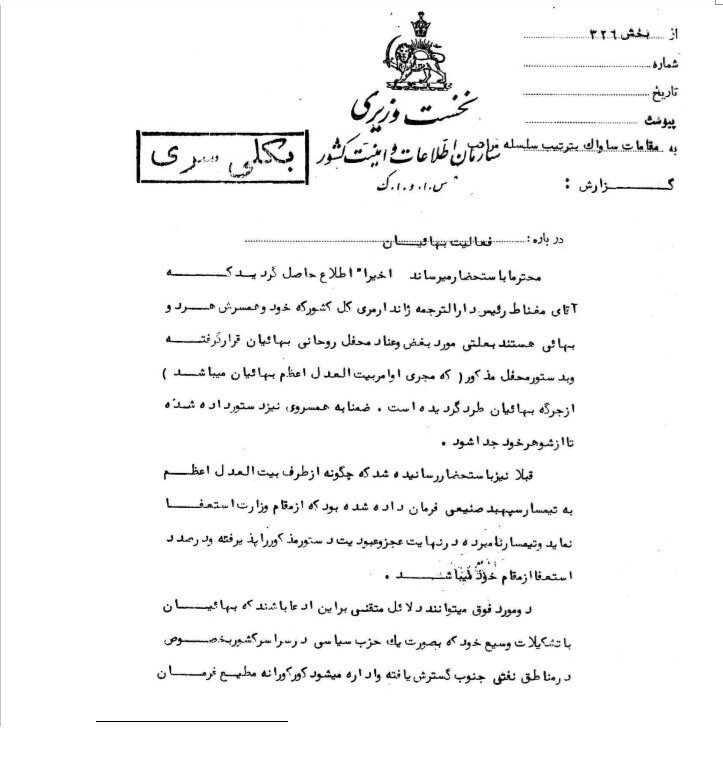 از بخش ۳۲۶
شماره
تاریخ
پیوست
نخست وزیری
سازمان اطلاعات و امنیت کشور
س.ا.و.ا.ک
به مقامات ساواك بترتیب سلسله مراتب
گزارش :
بکلی سری
درباره : فعالیت بهائیان
محترما باستحضار میرساند اخیرا" اطلاع حاصل گردید که
آقای مغناط رئیس دارالترجمه ژاندارمری کل کشور که خود و همسرش هرد و
بهائی هستند بعلتی مورد بغض وعناد محفل روحانی بهائیان قرارگرفته
وبد ستور محفل مذکور ( که مجری اوامر بیت العدل اعظم بهائیان میباشد )
ازجرگه بهائیان طرد گردیده است . ضمنا به همسروی، نیزد ستور داده شده
تا ازشوهر خود جدا شود .
قبلا نیز باستحضار رسانیده شد که چگونه ازطرف بیت العدل اعظم
به تیمسار سپهبد صنیعی فرمان داده شده بود که ازمقام وزارت استعفا
نماید وتیمسار نامبرده درنهایت عجزوعبودیت دستورمذکورراپذیرفته ودرصدد
استعفا ازمقام خود میباشد .
دومورد فوق میتوانند دلائل متقنی براین ادعا باشند که بهائیان
باتشکیلات وسیع خود که بصورت یك حزب سیاسی درسراسرکشور بخصوص
درمناطق نفتی جنوب گسترش یافته واداره میشود کورکورانه مطیع فرمان